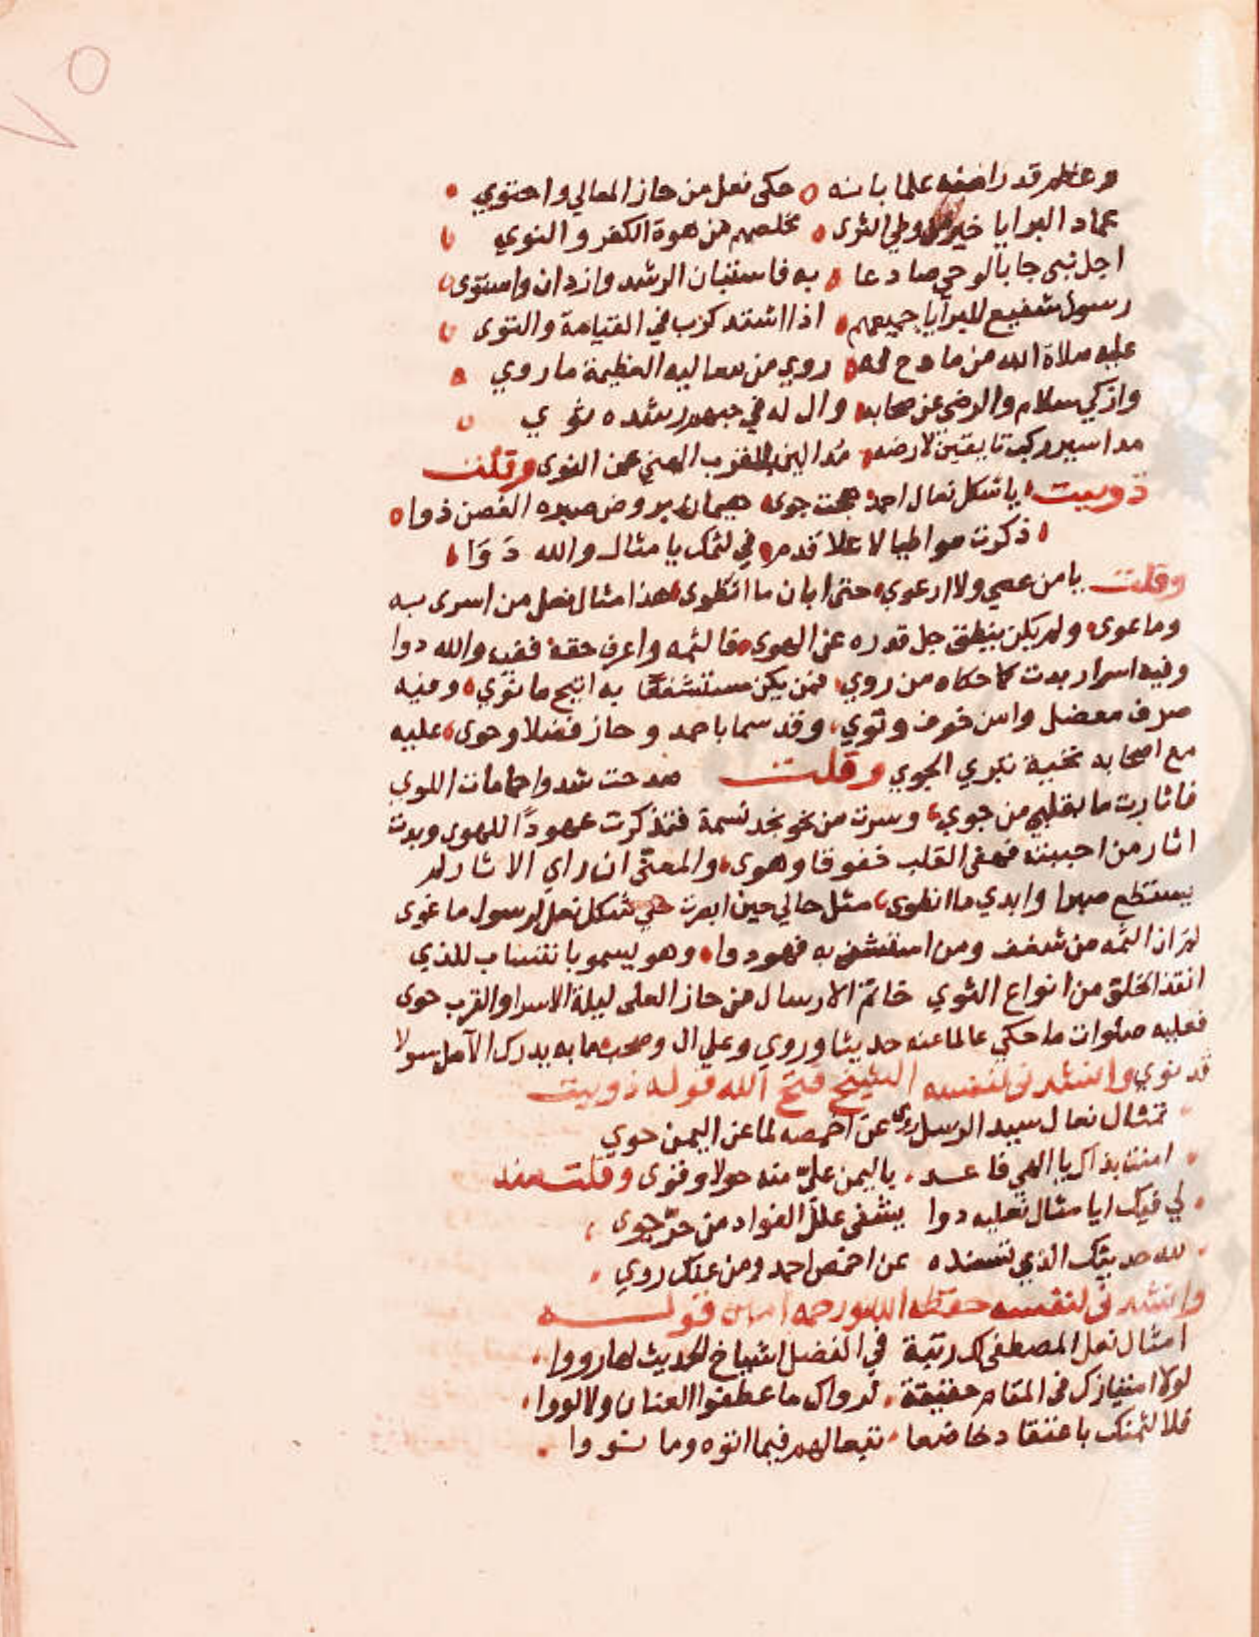 ٧٥
وعظم قدرا ضفه علما بانه حكى نعل من حاز المعالي واحتوي
عماد البرايا خير من وطي الثرى مخلصهم من هوة الكفر والنوي
اجل نبي جا بالوحي صادعا به فاستبان الرشد وازدان واستوى
رسول شفيع للبرايا جميعهم اذا اشتد كرب في القيامة والتوى
عليه صلاة الله من مادح له روي من معاليه العظيمة ما روي
وازكي سلام والرضى عن صحابه وال له في رشده
مدا سير ركب لارضه من الغرب عن النوى وقلت
ذوبيت يا شكل نعال احمد هجت جوى هيمان بروض صبره الغصن ذوا
ذكرت مواطيا لاعلا قدم في لثمك يا مثال والله دوا
وقلت يا من عصي ولا ارعوي حتى ابان ما انطوى هذا مثال نعل من اسرى به
وما غوى ولم يكن ينطق جل قدره عن الهوى فالثمه واعرف حقه ففيه والله دوا
وفيه اسرار بدت كما حكاه من روي فمن يكن مستشفعا به انيح ما نوي وفيه
صرف معضل وامن خوف وتوي وقد سما باحمد وحاز فضلا وحوى عليه
مع اصحابه تحية تبري الجوي وقلت صدحت شدوا حمامات اللوي
فاثارت ما بقلبي من جوي وسرت من نحو نجد نسمة فتذكرت عهودا للهوى وبدت
اثار من احببته فهفى القلب خفوقا وهوى والمعنى ان راي الاثار لم
يستطع صبرا وابدي ما انطوى مثل حالي حين ابصرت حكي شكل نعل لرسول ما غوى
لم ازل الثمه من شغف ومن استشفى به فهو دوا وهو يسمو بانتساب للذي
انقذ الخلق من انواع التوي خاتم الارسال من حاز العلى ليلة الاسرا والقرب حوى
فعليه صلوات ما حكي عالما عنه حديثا وروي وعلي ال وصحب ما به يدرك الآمل سولا
قد نوي وانشدني لنفسه الشيخ فتح الله قوله ذوبيت
تمثال نعال سيد الرسل روى عن اخمصه لما عن اليمن حوي
امنت بذاك يا الهي فا عد باليمن علي منه حولا وقوى وقلت منه
لي فيك ايا مثال نعليه دوا يشفى علل الفواد من حر جوى
لله حديثك الذي تسنده عن اخمص احمد ومن عنك روي
وانشدني لنفسه حفظه الله ورحمه امين قوله
امثال نعل المصطفى لك رتبة في الفضل اشياخ الحديث لها رووا
لولا امتيازك في المقام حقيقة لرواك ما عطفوا العنان ولا لووا
فلالثمنك باعتقاد خاضعا تتبعا لهم فيما اتوه وما نووا